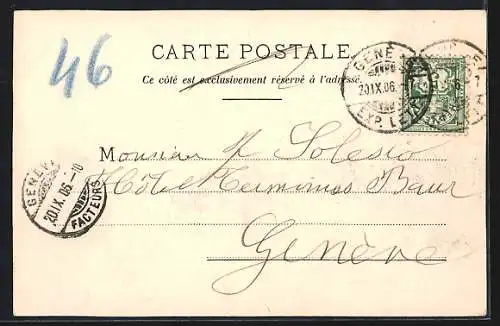 46
CARTE POSTALE.
Ce côté est exclusivement réservé à l'adresse.
GENÈ
20.IX.06.
EXP. LE
Monsieur A Solesio
Hôtel Baur
Genève
20.IX.06.
FACTEURS